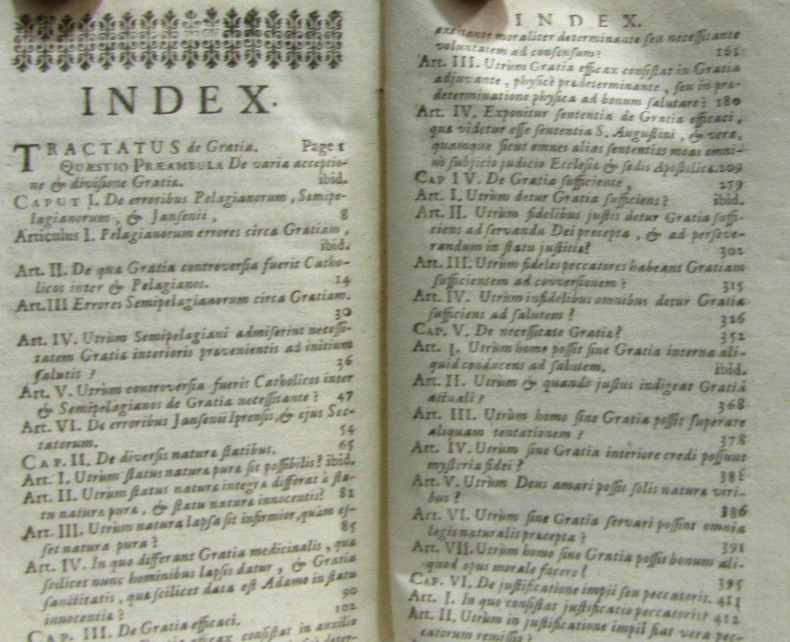 INDEX.
TRACTATUS de Gratia. Page 1
QUÆSTIO PRÆAMBULA De varia acceptio-
ne & divisione Gratiæ. ibid.
CAPUT I. De erroribus Pelagianorum, Semipe-
lagianorum, & Jansenii, 8
Articulus I. Pelagianorum errores circa Gratiam,
ibid.
Art. II. De qua Gratia controversia fuerit Catho-
licos inter & Pelagianos. 14
Art. III Errores Semipelagianorum circa Gratiam.
30
Art. IV. Utrùm Semipelagiani admiserint necessi-
tatem Gratiæ interioris prævenientis ad initium
salutis ? 36
Art. V. Utrùm controversia fuerit Catholicos inter
& Semipelagianos de Gratiæ necessitate ? 47
Art. VI. De erroribus Jansenii Iprensis, & ejus Sec-
tatorum. 54
CAP. II. De diversis naturæ statibus. 65
Art. I. Utrùm status naturæ puræ sit possibilis ? ibid.
Art. II. Utrùm status naturæ integræ differat à sta-
tu naturæ puræ, & statu naturæ innocentis ? 81
Art. III. Utrùm natura lapsa sit infirmior, quàm es-
set natura pura ? 85
Art. IV. In quo differant Gratia medicinalis, quæ
scilicet nunc hominibus lapsis datur, & Gratia
sanctitatis, quæ scilicet data est Adamo in statu
innocentiæ ? 90
CAP. III. De Gratia efficaci. 102
efficax consistat in auxilio
INDEX.
excitante moraliter determinante seu necessitante
voluntatem ad consensum ? 161
Art. III. Utrùm Gratia efficax consistat in Gratia
adjuvante, physicè prædeterminante, seu in præ-
determinatione physica ad bonum salutare ? 180
Art. IV. Exponitur sententia de Gratia efficaci,
quæ videtur esse sententia S. Augustini, & vera,
quamque sicut omnes alias sententias meas omni-
nò subjicio judicio Ecclesiæ & sedis Apostolicæ. 209
CAP IV. De Gratia sufficiente, 279
Art. I. Utrùm detur Gratia sufficiens ? ibid.
Art. II. Utrùm fidelibus justis detur Gratia suffi-
ciens ad servanda Dei præcepta, & ad perseve-
randum in statu justitiæ ? 302
Art. III. Utrùm fideles peccatores habeant Gratiam
sufficientem ad conversionem ? 315
Art. IV. Utrùm infidelibus omnibus detur Gratia
sufficiens ad salutem ? 326
CAP. V. De necessitate Gratiæ ? 352
Art. I. Utrùm homo possit sine Gratia interna ali-
quid conducens ad salutem. ibid.
Art. II. Utrùm & quando justus indigeat Gratiâ
actuali ? 368
Art. III. Utrùm homo sine Gratia possit superare
aliquam tentationem ? 378
Art. IV. Utrùm sine Gratia interiore credi possunt
mysteria fidei ? 381
Art. V. Utrùm Deus amari possit solis naturæ viri-
bus ? 386
Art. VI. Utrùm sine Gratia servari possint omnia
legis naturalis præcepta ? 391
Art. VII. Utrùm homo sine Gratia possit bonum ali-
quod opus morale facere ? 395
CAP. VI. De justificatione impii seu peccatoris. 411
Art. I. In quo consistat justificatio peccatoris ? 412
Art. II. Utrùm in justificatione impii fiat vera pec-
catorum remissio ?